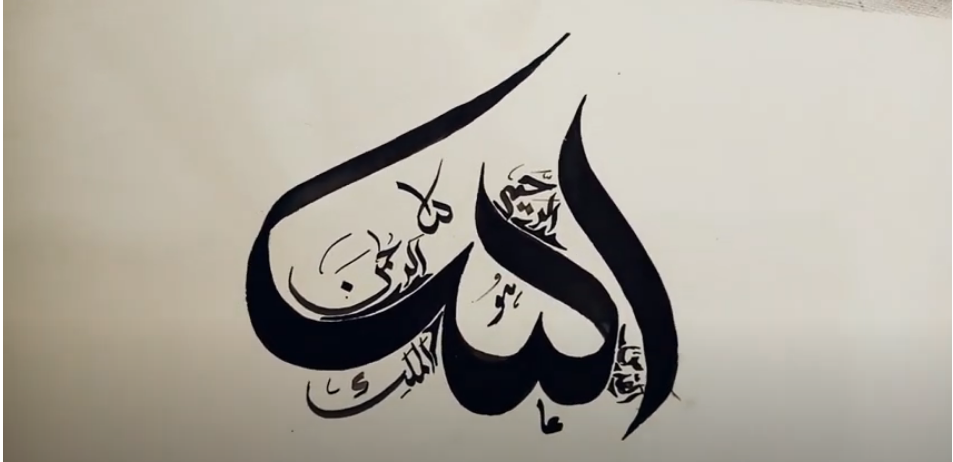 الله
الرحيم
الرحمن
هو
الملك